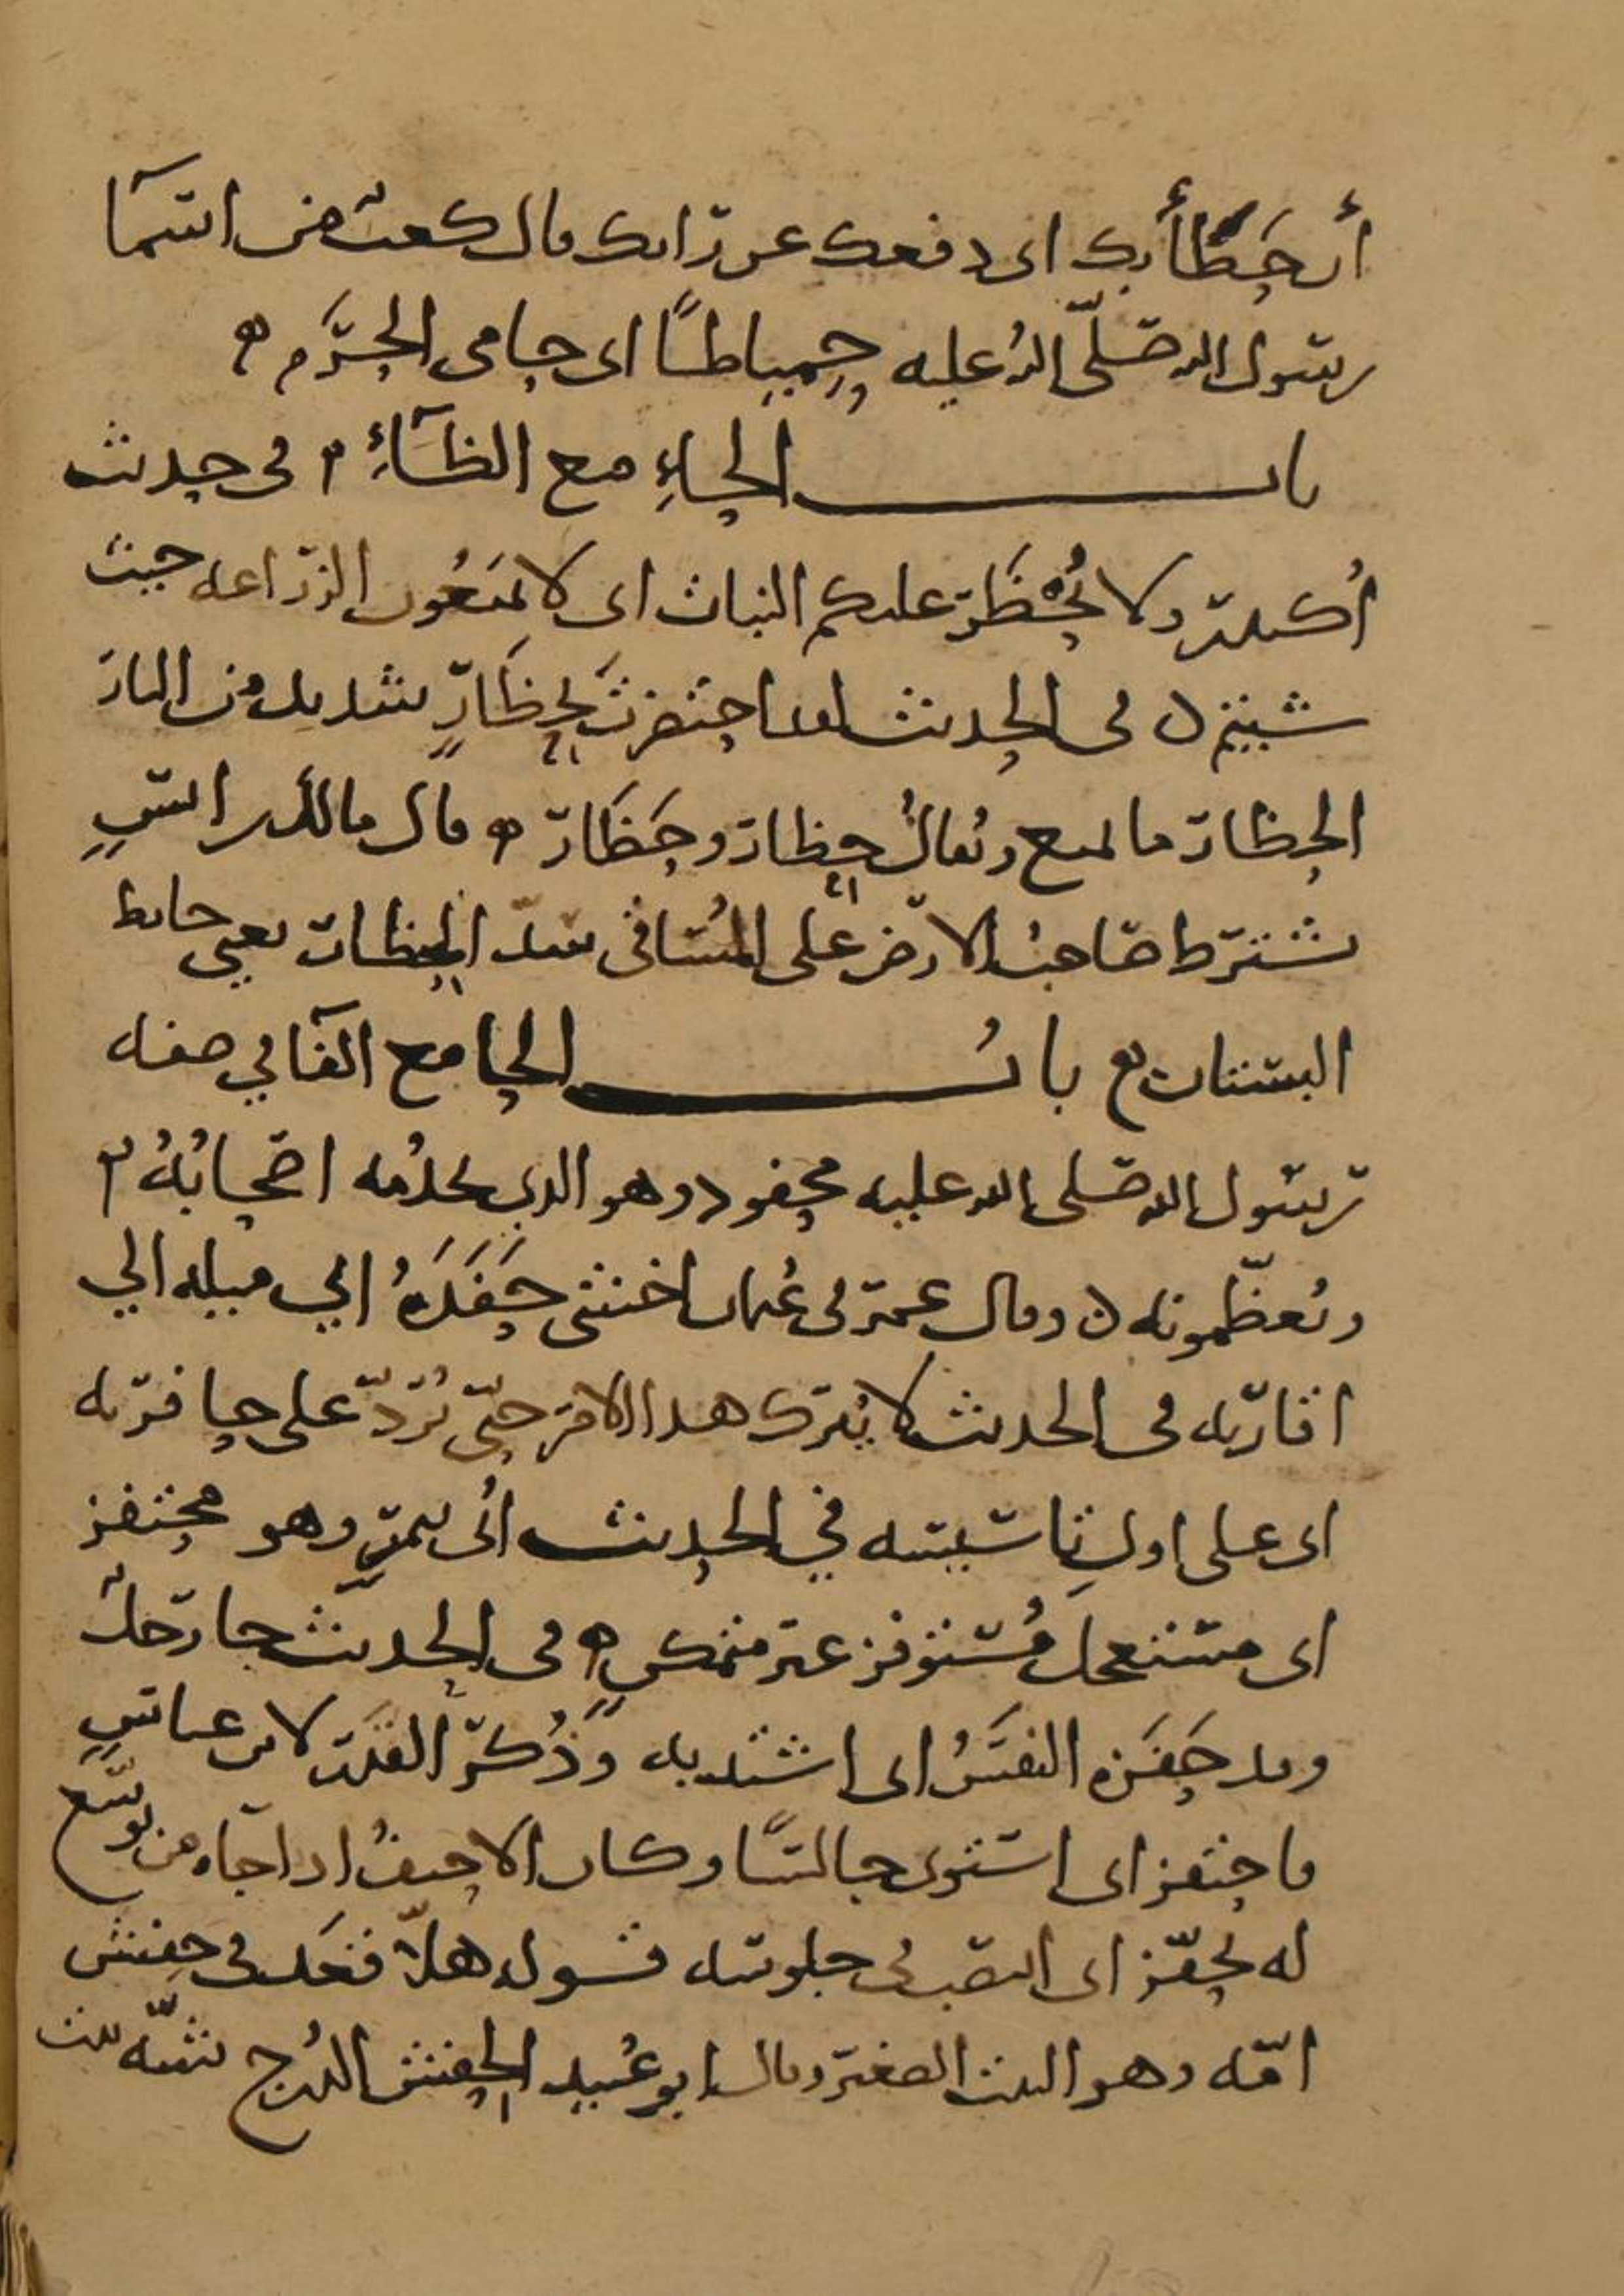 أن حَطَأَ بك اى دفعك عن رايك قال كعب من اسما
رسول الله صلّى الله عليه حِمْيَاطًا اى حامى الحُرَم ه
باب الحاءِ مع الظاءِ ه فى حديث
أُكيدر ولا يُحْظَر عليكم النبات اى لا تمنعُون الزراعه حيث
شيتم ه فى الحديث لقد احتظرتَ بحِظَارٍ شديد من النار
الحظار ما لمنع ويُقالُ حِظار وحَظَار ه قال مالك بن انسٍ
يشترط صاحبُ الارض على المُساقى سدّ الحِظار يعني حايط
البستان ه بابُ الحا مع الفا في صفه
رسول الله صلى الله عليه محفود وهو الذي يخدُمه اصحابُهُ ه
ويُعظّمونه ه وقال عمر فى عُثمان اخشى حَفَدَهُ اي ميله الي
اقاربه فى الحديث لا يُترك هذا الامر حتّى يُرَدّ على حافرته
اى على اول تاسيسه في الحديث أُتى بتمرٍ وهو محتفز
اى مستعجل مُستوفز غير متمكنٍ ه فى الحديث جا رجلٌ
وقد حَفَزه النفَسُ اى اشتد به وذُكر القدَر لابن عباسٍ
فاحتفز اى استوى جالسًا وكان الاحنفُ اذا جاه من يوسّع
له تحفّز اى انتصب فى جلوسه قوله هلّا قعد فى حِفش
امّه وهو البيت الصغير وقال ابو عُبيد الحِفش الدُرج شبّه بيت